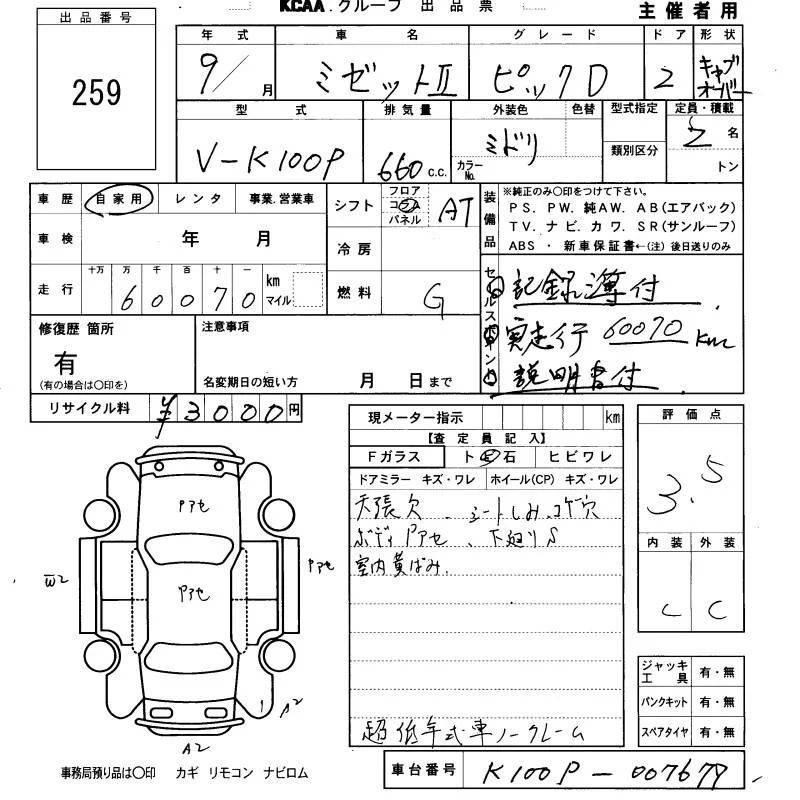 KCAA.グループ 出品票
主催者用
出品番号
259
年式 車名 グレード ドア 形状
9/ 月 ミゼットⅡ ピックD 2 キャブオーバー
型式 排気量 外装色 色替 型式指定 定員・積載
V-K100P 660 c.c. ミドリ カラーNo. 類別区分 2 名
トン
車歴 自家用 レンタ 事業.営業車
車検 年 月
走行 十万 万 千 百 十 一
60070 km マイル
シフト フロア コラム パネル AT
冷房
燃料 G
装備品 ※純正のみ○印をつけて下さい。
PS. PW. 純AW. AB(エアバック)
TV. ナビ. カワ. SR(サンルーフ)
ABS ・ 新車保証書←(注) 後日送りのみ
セールスポイント
記録簿付
実走行 60070 Km
説明書付
修復歴 箇所
有
(有の場合は○印を)
注意事項
名変期日の短い方 月 日まで
リサイクル料 ¥3000円
現メーター指示 km
【査定員記入】
Fガラス ト 石 ヒビワレ
ドアミラー キズ・ワレ ホイール(CP) キズ・ワレ
天張欠、シートしみ.コゲ穴
ボディPアセ、下廻りS
室内黄ばみ.
超低年式車ノークレーム
評価点
3.5
内装 外装
C C
ジャッキ工具 有・無
パンクキット 有・無
スペアタイヤ 有・無
Pアセ
Pアセ
Pアセ
W2
A2
A2
事務局預り品は○印 カギ リモコン ナビロム
車台番号 K100P-007679